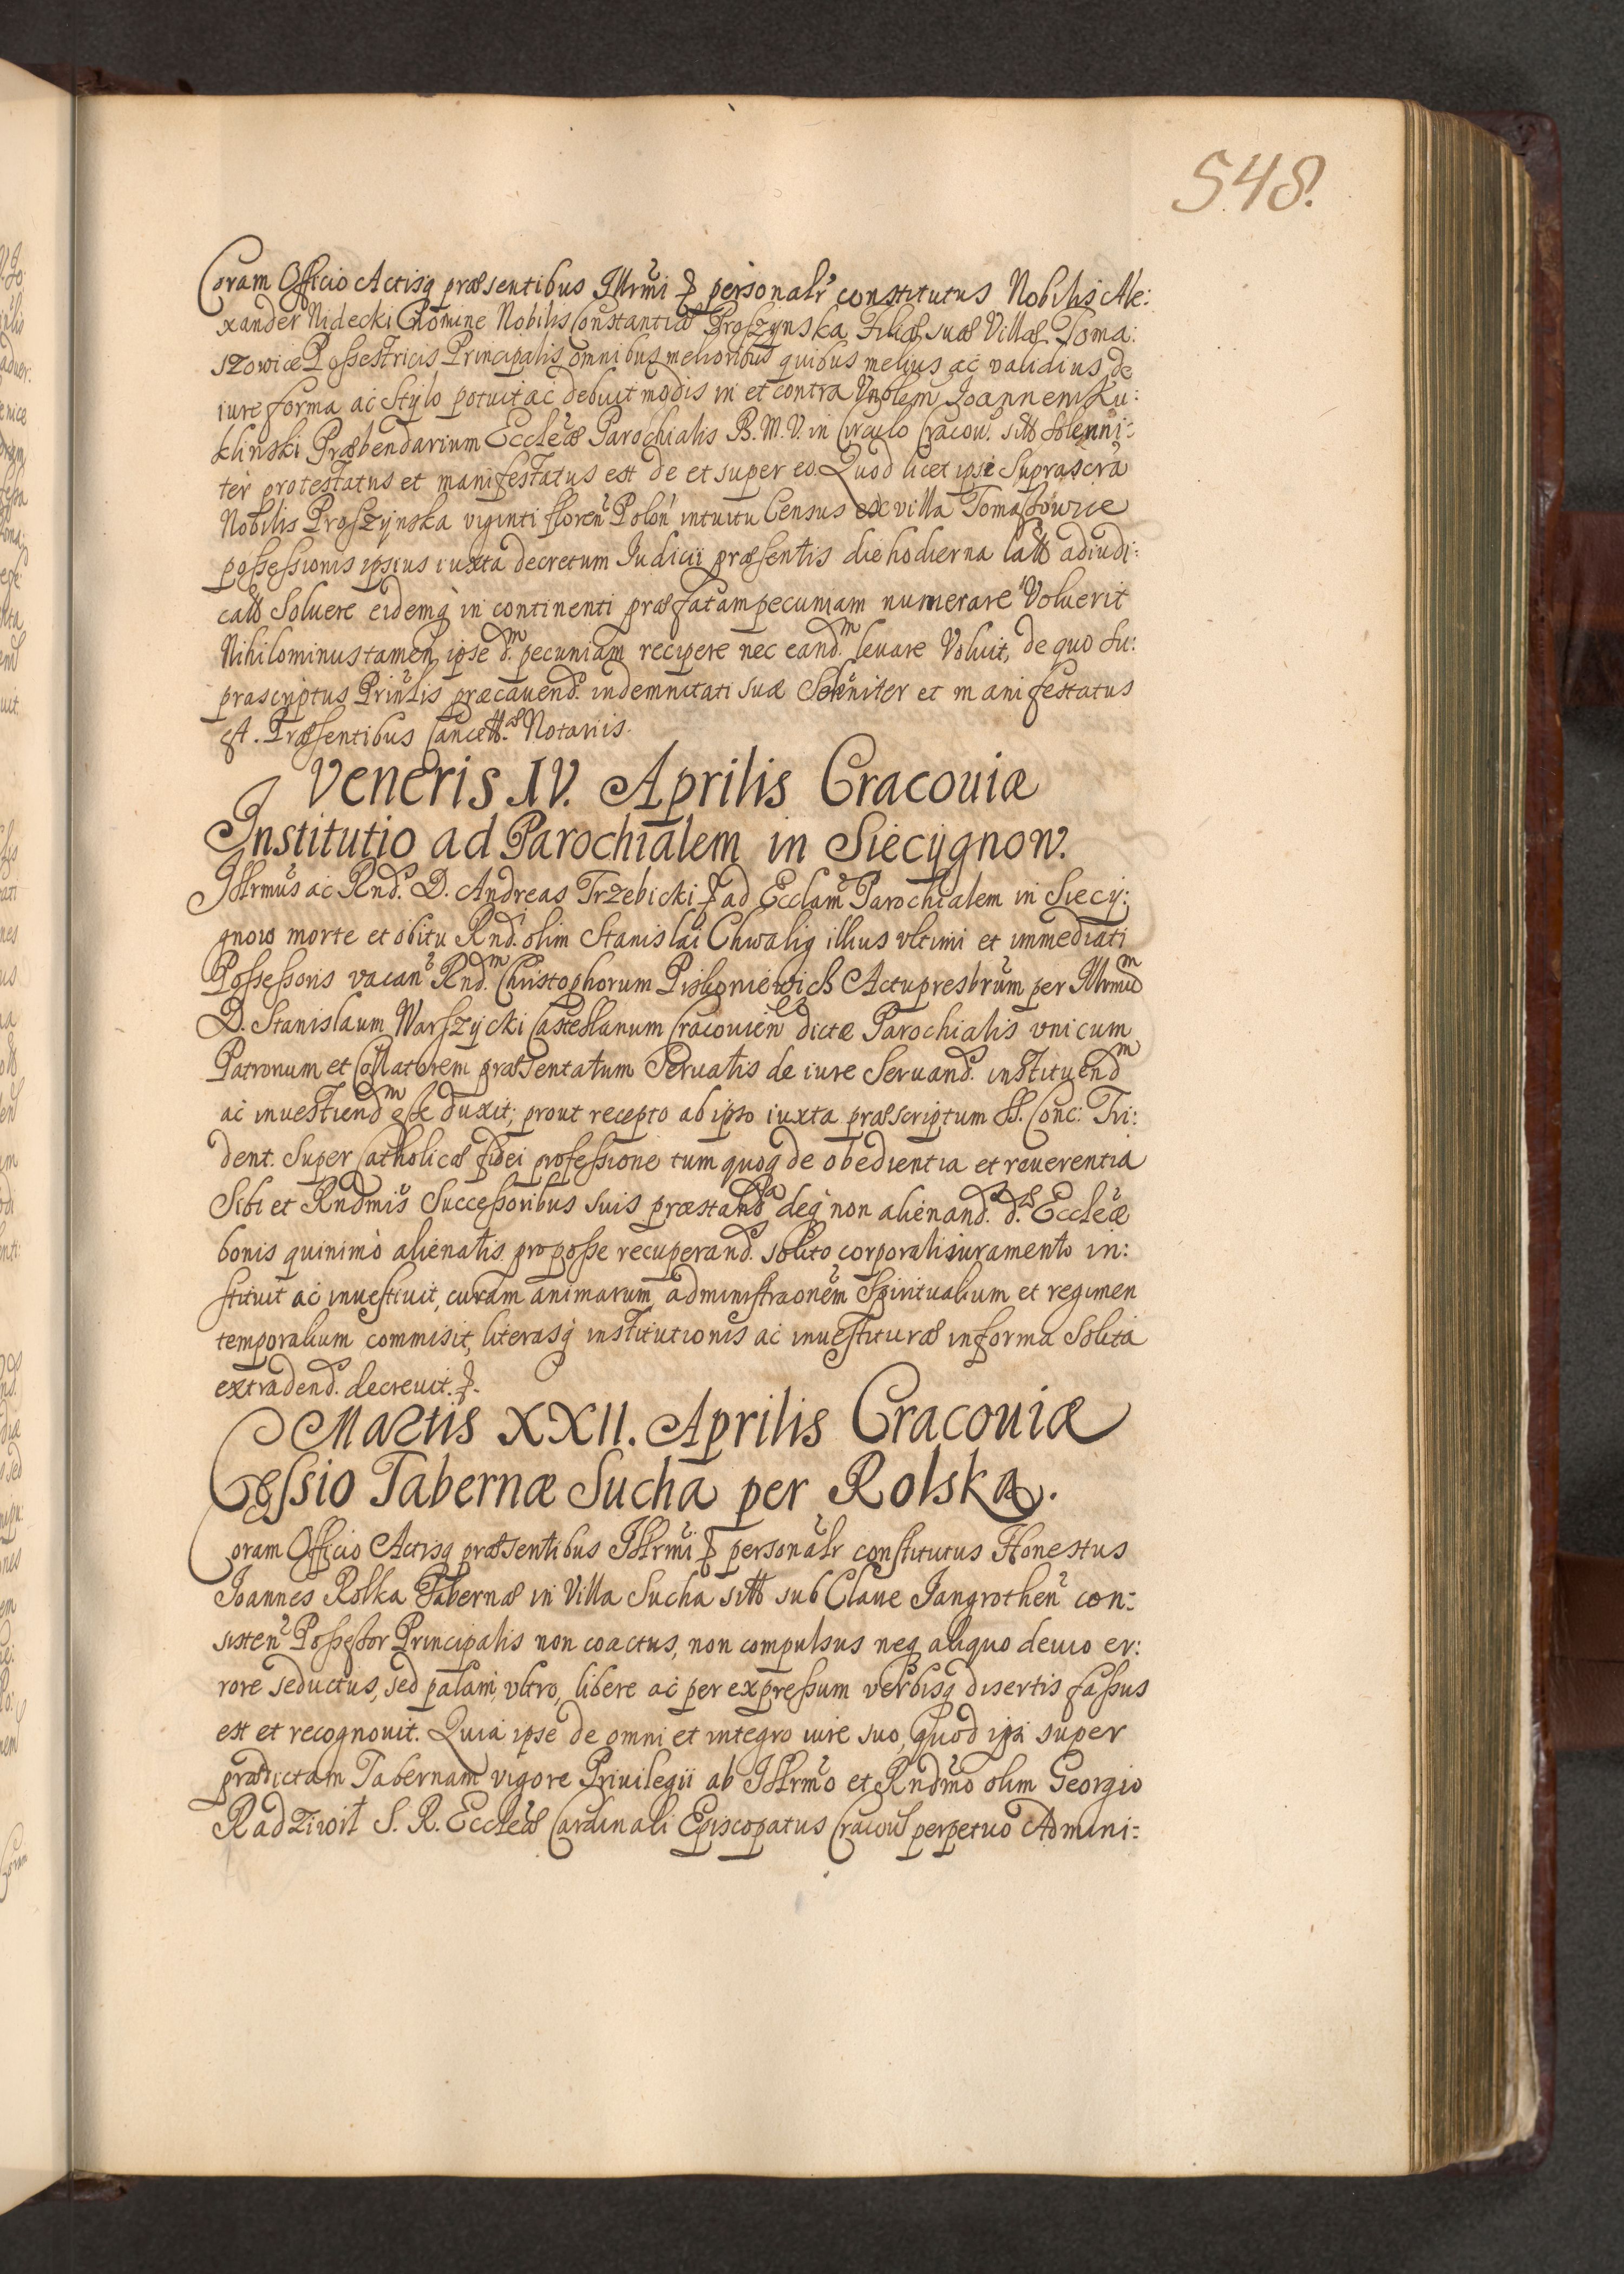 548.
Coram Officio Actisq præsentibus Illrmi personalr constitutus Nobilis Ale:
xander Nidecki Nomine Nobilis Constantiæ Proszynska Filiæ suæ Villæ Toma:
szowicæ Possestricis Principalis omnibus melioribus quibus melius ac validius de
iure forma ac Stylo potuit ac debuit modis in et contra Vnblem Joannem Ku:
klinski Præbendarium Eccleæ Parochialis B. M. V. in Circulo Cracou. Solenni:
ter protestatus et manifestatus est de et super eo. Quod licet ipse Suprascra
Nobilis Proszynska viginti floren Polon intuitu Census ex villa Tomaszowice
possessionis ipsius iuxta decretum Judicii præsentis die hodierna adiudi:
Soluere eidemq in continenti præfatam pecuniam numerare Voluerit
Nihilominus tamen ipse d.m pecuniam recipere nec eand.m leuare Voluit, de quo su:
prascriptus Prinlis præcauend. indemnitati suæ Soleniter et manifestatus
est. Præsentibus Notariis.
Veneris IV. Aprilis Cracouiæ
Institutio ad Parochialem in Siecÿgnow.
Illrmus ac Rnd. D. Andreas Trzebicki ad Ecclam Parochialem in Siecÿ:
gnow morte et obitu Rnd. olim Stanislai Chwalig illius vltimi et immediati
Possessoris vacan Rnd.m Christophorum Actupresbrum per Illrmum
D. Stanislaum Warszÿcki Castellanum Cracouien dictæ Parochialis vnicum
Patronum et Collatorem præsentatum Seruatis de iure Seruand. instituend.m
ac inuestiend.m esse duxit; prout recepto ab ipso iuxta præscriptum SS. Conc: Tri:
dent. Super Catholicæ fidei professione tum quoq de obedientia et reuerentia
Sibi et Rndmis Successoribus suis præstand deq non alienand. d. Eccleæ
bonis quinimò alienatis pro posse recuperand. solito corporali iuramento in:
stituit ac inuestiuit, curam animarum administraonem Spiritualium et regimen
temporalium commisit, literasq institutionis ac inuestituræ in forma Solita
extradend. decreuit.
Martis XXII. Aprilis Cracouiæ
Cessio Tabernæ Sucha per Rolska.
Coram Officio Actisq præsentibus Illrmi personalr constitutus Honestus
Joannes Rolka Tabernæ in Villa Sucha sub Claue Jangrothen con:
sisten Possessor Principalis non coactus, non compulsus neq aliquo deuio er:
rore seductus, sed palam, vltro, libere ac per expressum verbisq disertis fassus
est et recognouit. Quia ipse de omni et integro iure suo, quod ipsi super
prædictam Tabernam vigore Priuilegii ab Illrmo et Rndmo olim Georgio
Radziwil S. R. Eccleæ Cardinali Episcopatus perpetuo Admini: